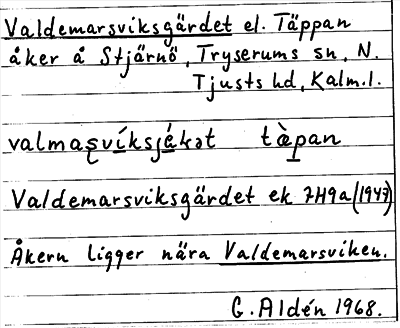 Valdemarsviksgärdet el. Täppan
åker å Stjärnö, Tryserums sn, N.
Tjusts hd, Kalm.l.
valmașvíksjǽkət tæ̀pan
Valdemarsviksgärdet ek 7H9a (1947)
Åkern ligger nära Valdemarsviken.
G. Aldén 1968.